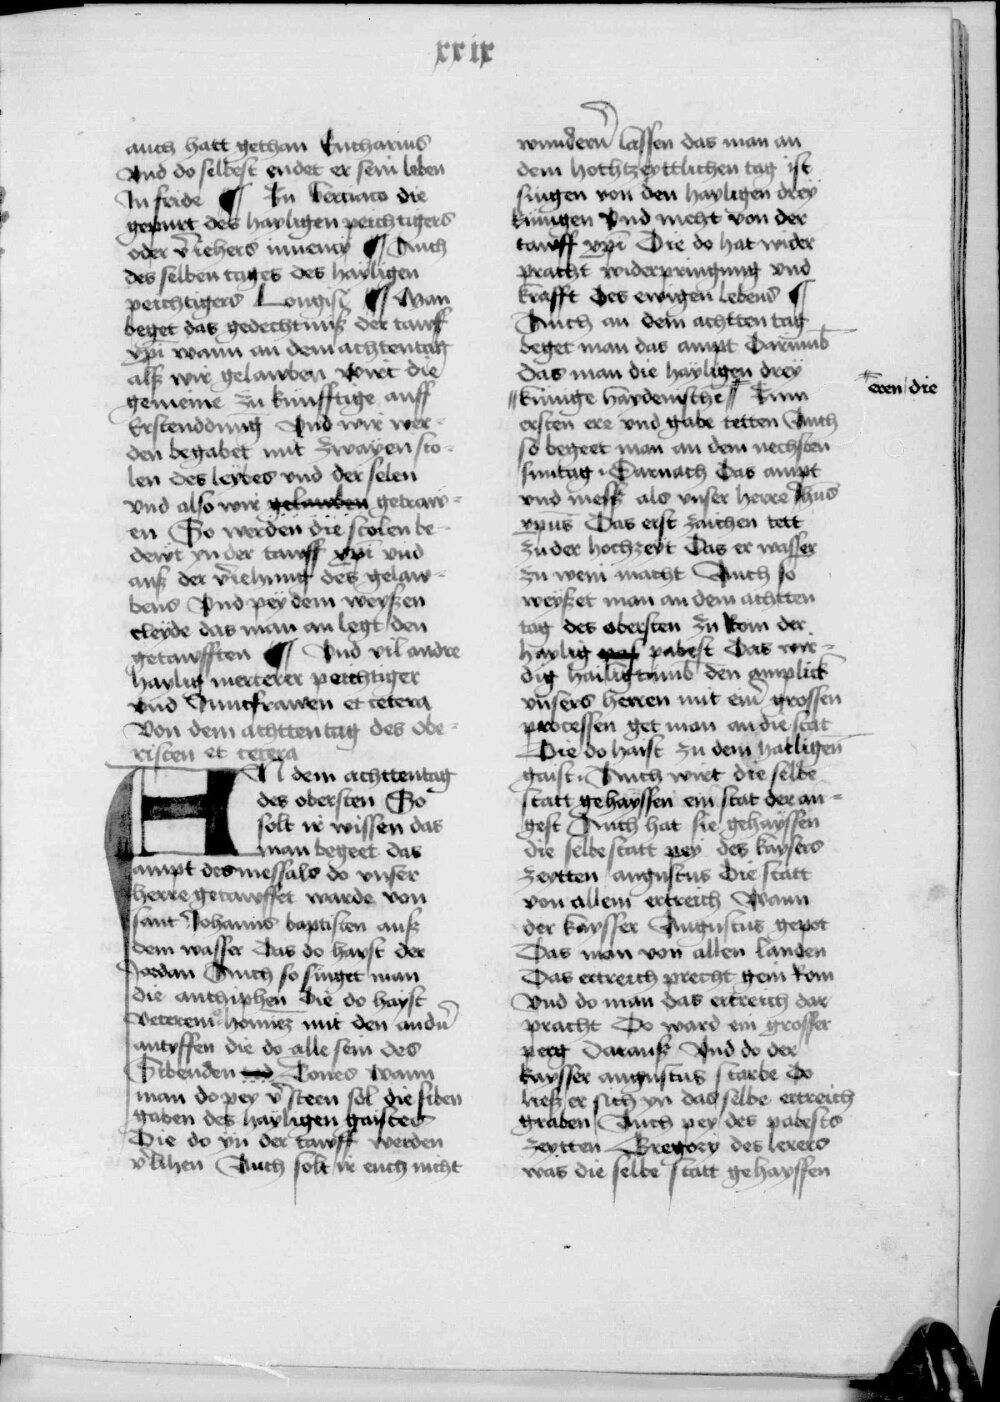 xxix
auch hatt gethan Eucharius
Vnd do selbest endet er sein leben
In fride ¶ In Terciaco die
gepurt des hayligen peichtigers
oder v̄iehers ¶ Auch
des selben tages des hayligen
peichtigers Longisi ¶ Man
beget das gedechtniß der tauff
xp̄i wann an dem achtentag
alß wir gelawben wirt die
gemeine zu kunfftige auff
Erstenddung Vnd wir wer-
den begabet mit zwayen sto-
len des leybes vnd der selen
vnd also wir gelawben getraw-
en So werden die stolen be-
dewt yn der tawff xp̄i vnd
auß der v̄iehung des gelaw-
bens Vnd pey dem weyßen
cleyde das man an legt den
getawfften ¶ Vnd vil andre
haylig merterer peichtiger
vnd Junckfrawen et cetera
Von dem achttentag des obe-
risten et cetera
AN dem achttentag
des obersten So
solt ir wissen das
man begeet das
ampt des messals do vnser
herre getawffet warde von
sant Johanns baptisten auß
dem wasser Das do hayst der
Jordan Auch so singet man
die anthiphen Die do hayst
Veterem hominez mit den andn̄
antyffen die do alle sein des
Sibenden Tones Wann
man do pey v̄steen sol die siben
gaben des hayligen gaistes
Die do yn der tawff werden
v̄lihen Auch solt ir euch nicht
wundern̄ lassen das man an
dem hochtzeyttlichen tag ist
singen von den hayligen drey
kunigen Vnd nicht von der
tawff xp̄i Die do hat wider
pracht widerpringung vnd
krafft Des ewigen lebens ¶
Auch an dem achtten tag
beget man das ampt Darumb
Das man die hayligen drey
eren / die
kunige haydenische Zum
ersten ere vnd gabe tetten Auch
so begeet man an dem nechsten
suntag Darnach Das ampt
vnd meß als vnser herre Jhūs
xpūs Das erst zaichen tett
zu der hochzeyt Das er wasser
zu wein macht Auch so
weyßet man an dem achtten
tag des obersten zu Rom der
haylig pabest Das wir-
dig hailigtumb den anplick
vnsers herren mit eim̄ grossen
processen get man an die stat
Die do haist zu dem hailigen
gaist Auch wirt die selbe
statt gehayssen ein stat der an-
gest Auch hat sie gehayssen
die selbe statt pey des kaysers
zeytten augustus Die statt
von allem ertreich Wann
der kaysser Augustus gepot
Das man von allen landen
Das ertreich precht gein Rom
Vnd do man das ertreich dar
pracht Do ward ein grosser
perg Darauß Vnd do der
kaysser augustus starbe Do
ließ er sich yn das selbe ertreich
graben Auch pey des pabests
zeytten Gregory des lerers
was die selbe statt gehayssen